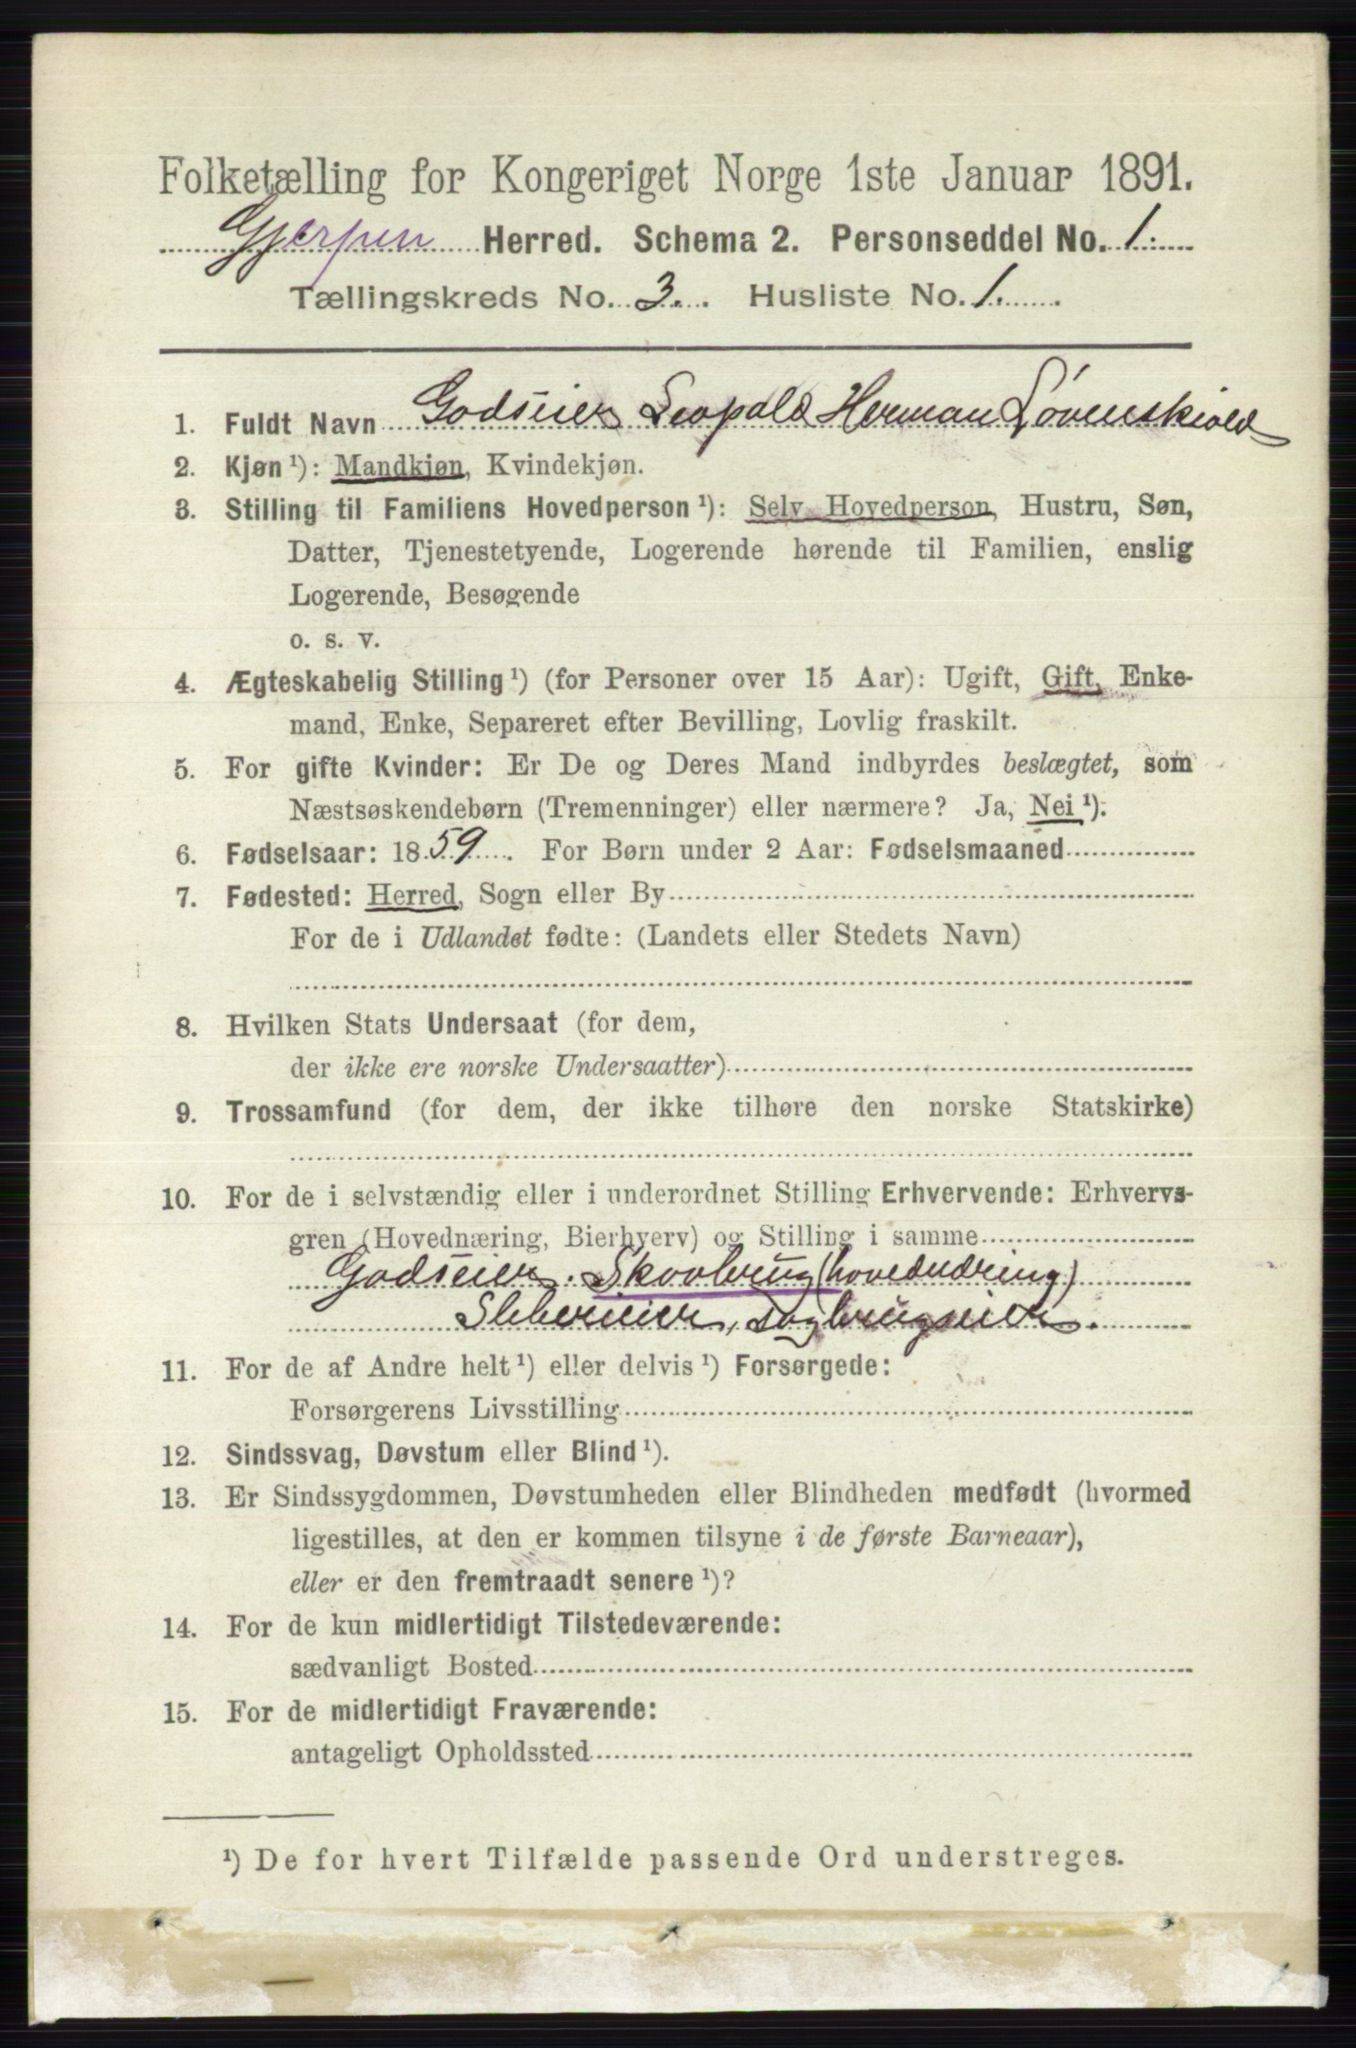 Folketælling for Kongeriget Norge 1ste Januar 1891.
Gjerpen Herred. Schema 2. Personseddel No. 1.
Tællingskreds No. 3. Husliste No. 1.
1. Fuldt Navn Godseier Leopold Herman Løvenskiold
2. Kjøn ¹): Mandkjøn, Kvindekjøn.
3. Stilling til Familiens Hovedperson ¹): Selv Hovedperson, Hustru, Søn,
Datter, Tjenestetyende, Logerende hørende til Familien, enslig
Logerende, Besøgende
o. s. v.
4. Ægteskabelig Stilling ¹) (for Personer over 15 Aar): Ugift, Gift, Enke-
mand, Enke, Separeret efter Bevilling, Lovlig fraskilt.
5. For gifte Kvinder: Er De og Deres Mand indbyrdes beslægtet, som
Næstsøskendebørn (Tremenninger) eller nærmere? Ja, Nei ¹).
6. Fødselsaar: 1859. For Børn under 2 Aar: Fødselsmaaned
7. Fødested: Herred, Sogn eller By
For de i Udlandet fødte: (Landets eller Stedets Navn)
8. Hvilken Stats Undersaat (for dem,
der ikke ere norske Undersaatter)
9. Trossamfund (for dem, der ikke tilhøre den norske Statskirke)
10. For de i selvstændig eller i underordnet Stilling Erhvervende: Erhvervs-
gren (Hovednæring, Bierhverv) og Stilling i samme
Godseier. Skovbrug (hovednæring)
Sliberieier, sagbrugseier.
11. For de af Andre helt ¹) eller delvis ¹) Forsørgede:
Forsørgerens Livsstilling
12. Sindssvag, Døvstum eller Blind ¹).
13. Er Sindssygdommen, Døvstumheden eller Blindheden medfødt (hvormed
ligestilles, at den er kommen tilsyne i de første Barneaar),
eller er den fremtraadt senere ¹)?
14. For de kun midlertidigt Tilstedeværende:
sædvanligt Bosted
15. For de midlertidigt Fraværende:
antageligt Opholdssted
¹) De for hvert Tilfælde passende Ord understreges.